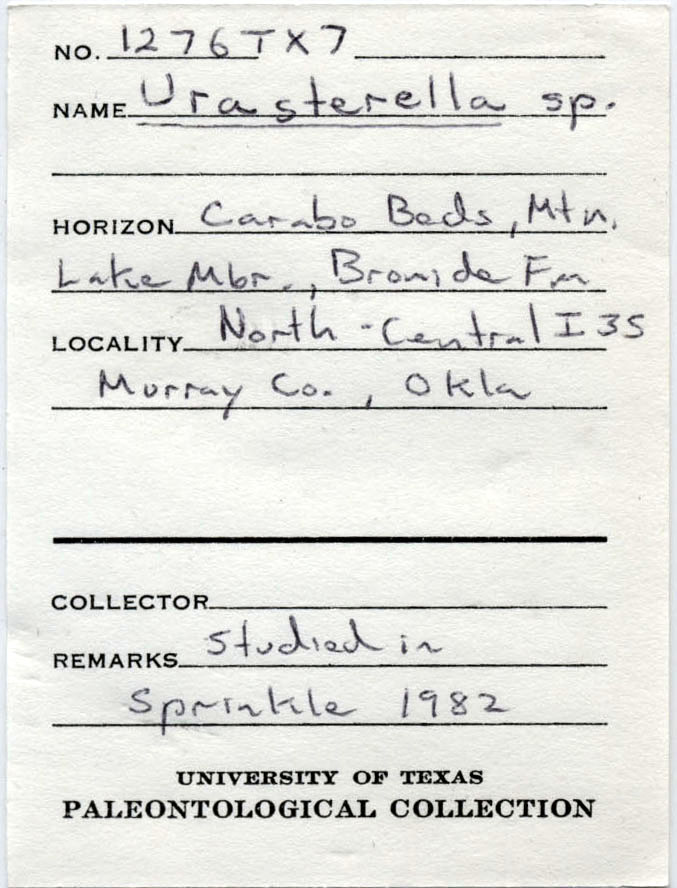 NO. 1276TX7
NAME Urasterella sp.
HORIZON Carabo Beds, Mtn.
Lake Mbr., Bromide Fm
LOCALITY North-Central I 35
Murray Co., Okla
COLLECTOR
REMARKS Studied in
Sprinkle 1982
UNIVERSITY OF TEXAS
PALEONTOLOGICAL COLLECTION